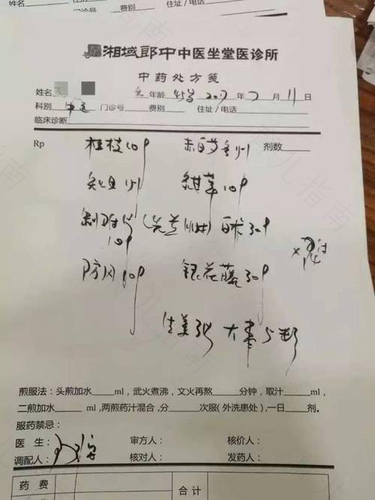 湘域郎中中医坐堂医诊所
中药处方笺
姓名: 年龄: 45岁 2017年 月11日
科别: 门诊号 费别 住址/电话
临床诊断
Rp 桂枝10g 赤白芍各15g 剂数
知母15g 甘草10g
制附片10g (先煎1小时) 白术30g
防风10g 银花藤30g
生姜3片 大枣5枚
煎服法：头煎加水 ml，武火煮沸，文火再熬 分钟，取汁 ml，
二煎加水 ml，两煎药汁混合，分 次服(外洗患处)，一日 剂。
服药禁忌：
医 生： 审方人： 核价人：
调配人： 核对人： 发药人：
药 费 合 计